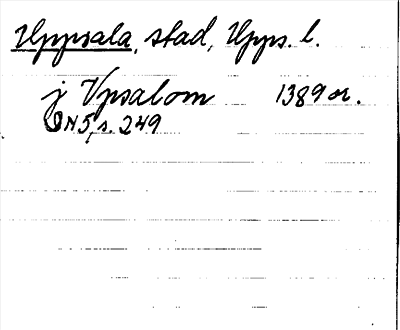 Uppsala, stad, Upps. l.
j Vpsalom 1389 or.
DN 5, s. 249